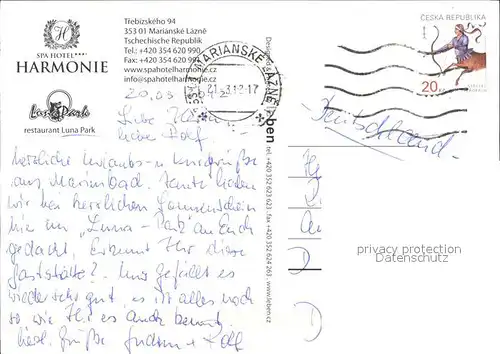 SPA HOTEL****
HARMONIE
Luna Park
restaurant Luna Park
Třebízského 94
353 01 Mariánské Lázně
Tschechische Republik
Tel.: +420 354 620 990
Fax: +420 354 620
www.spahotelharmonie.cz
info@spahotelharmonie.cz
MARIÁNSKÉ LÁZNĚ
21.-3.12-17
ČESKÁ REPUBLIKA
20
20.03
Liebe
lieber Rolf,
herzliche Urlaubs- u Kurgrüße
aus Marienbad. Heute haben
wir bei herrlichen Sonnenschein
hier im „Luna-Park" an Euch
gedacht. Erkennt Ihr diese
Gaststätte? Uns gefällt es
wieder sehr gut, es ist alles noch
so wie Ihr es auch kennt.
Herzl. Grüße Gudrun + Rolf
Deutschland
tel. +420 352 623 623, fax +420 352 624 263, www.leben.cz
privacy protection
Datenschutz